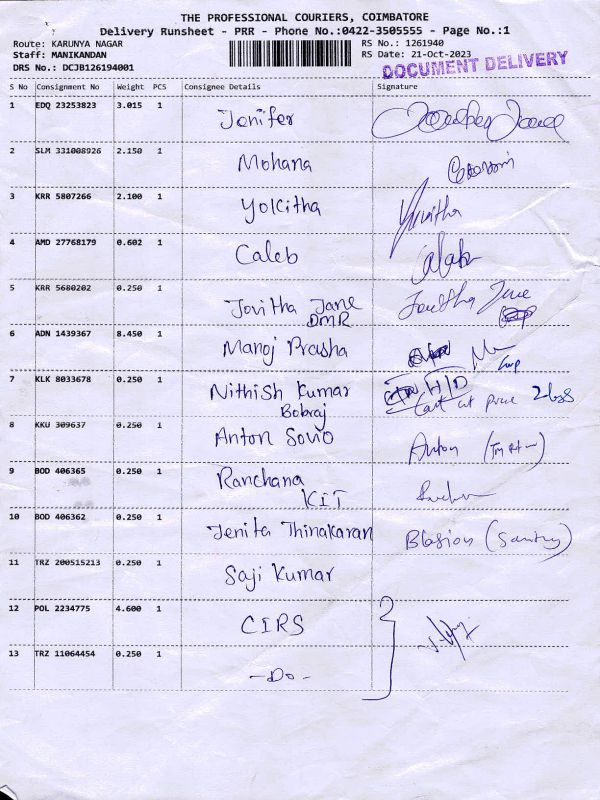 THE PROFESSIONAL COURIERS, COIMBATORE
Delivery Runsheet - PRR - Phone No.:0422-3505555 - Page No.:1
Route: KARUNYA NAGAR RS No.: 1261940
Staff: MANIKANDAN RS Date: 21-Oct-2023
DRS No.: DCJB126194001 DOCUMENT DELIVERY
S No Consignment No Weight PCS Consignee Details Signature
1 EDQ 23253823 3.015 1 Jenifer
2 SLM 331008926 2.150 1 Mohana
3 KRR 5807266 2.100 1 Yolcitha
4 AMD 27768179 0.602 1 Caleb
5 KRR 5680202 0.250 1 Jovitha Jane
DMR
6 ADN 1439367 8.450 1 Manoj Prasha
7 KLK 8033678 0.250 1 Nithish Kumar H/D
Bobraj
8 KKU 309637 0.250 1 Anton Sovio Anton
9 BOD 406365 0.250 1 Ranchana
KIT
10 BOD 406362 0.250 1 Jenita Thinakaran Blasion
11 TRZ 200515213 0.250 1 Saji Kumar
12 POL 2234775 4.600 1 CIRS
13 TRZ 11064454 0.250 1 -Do-